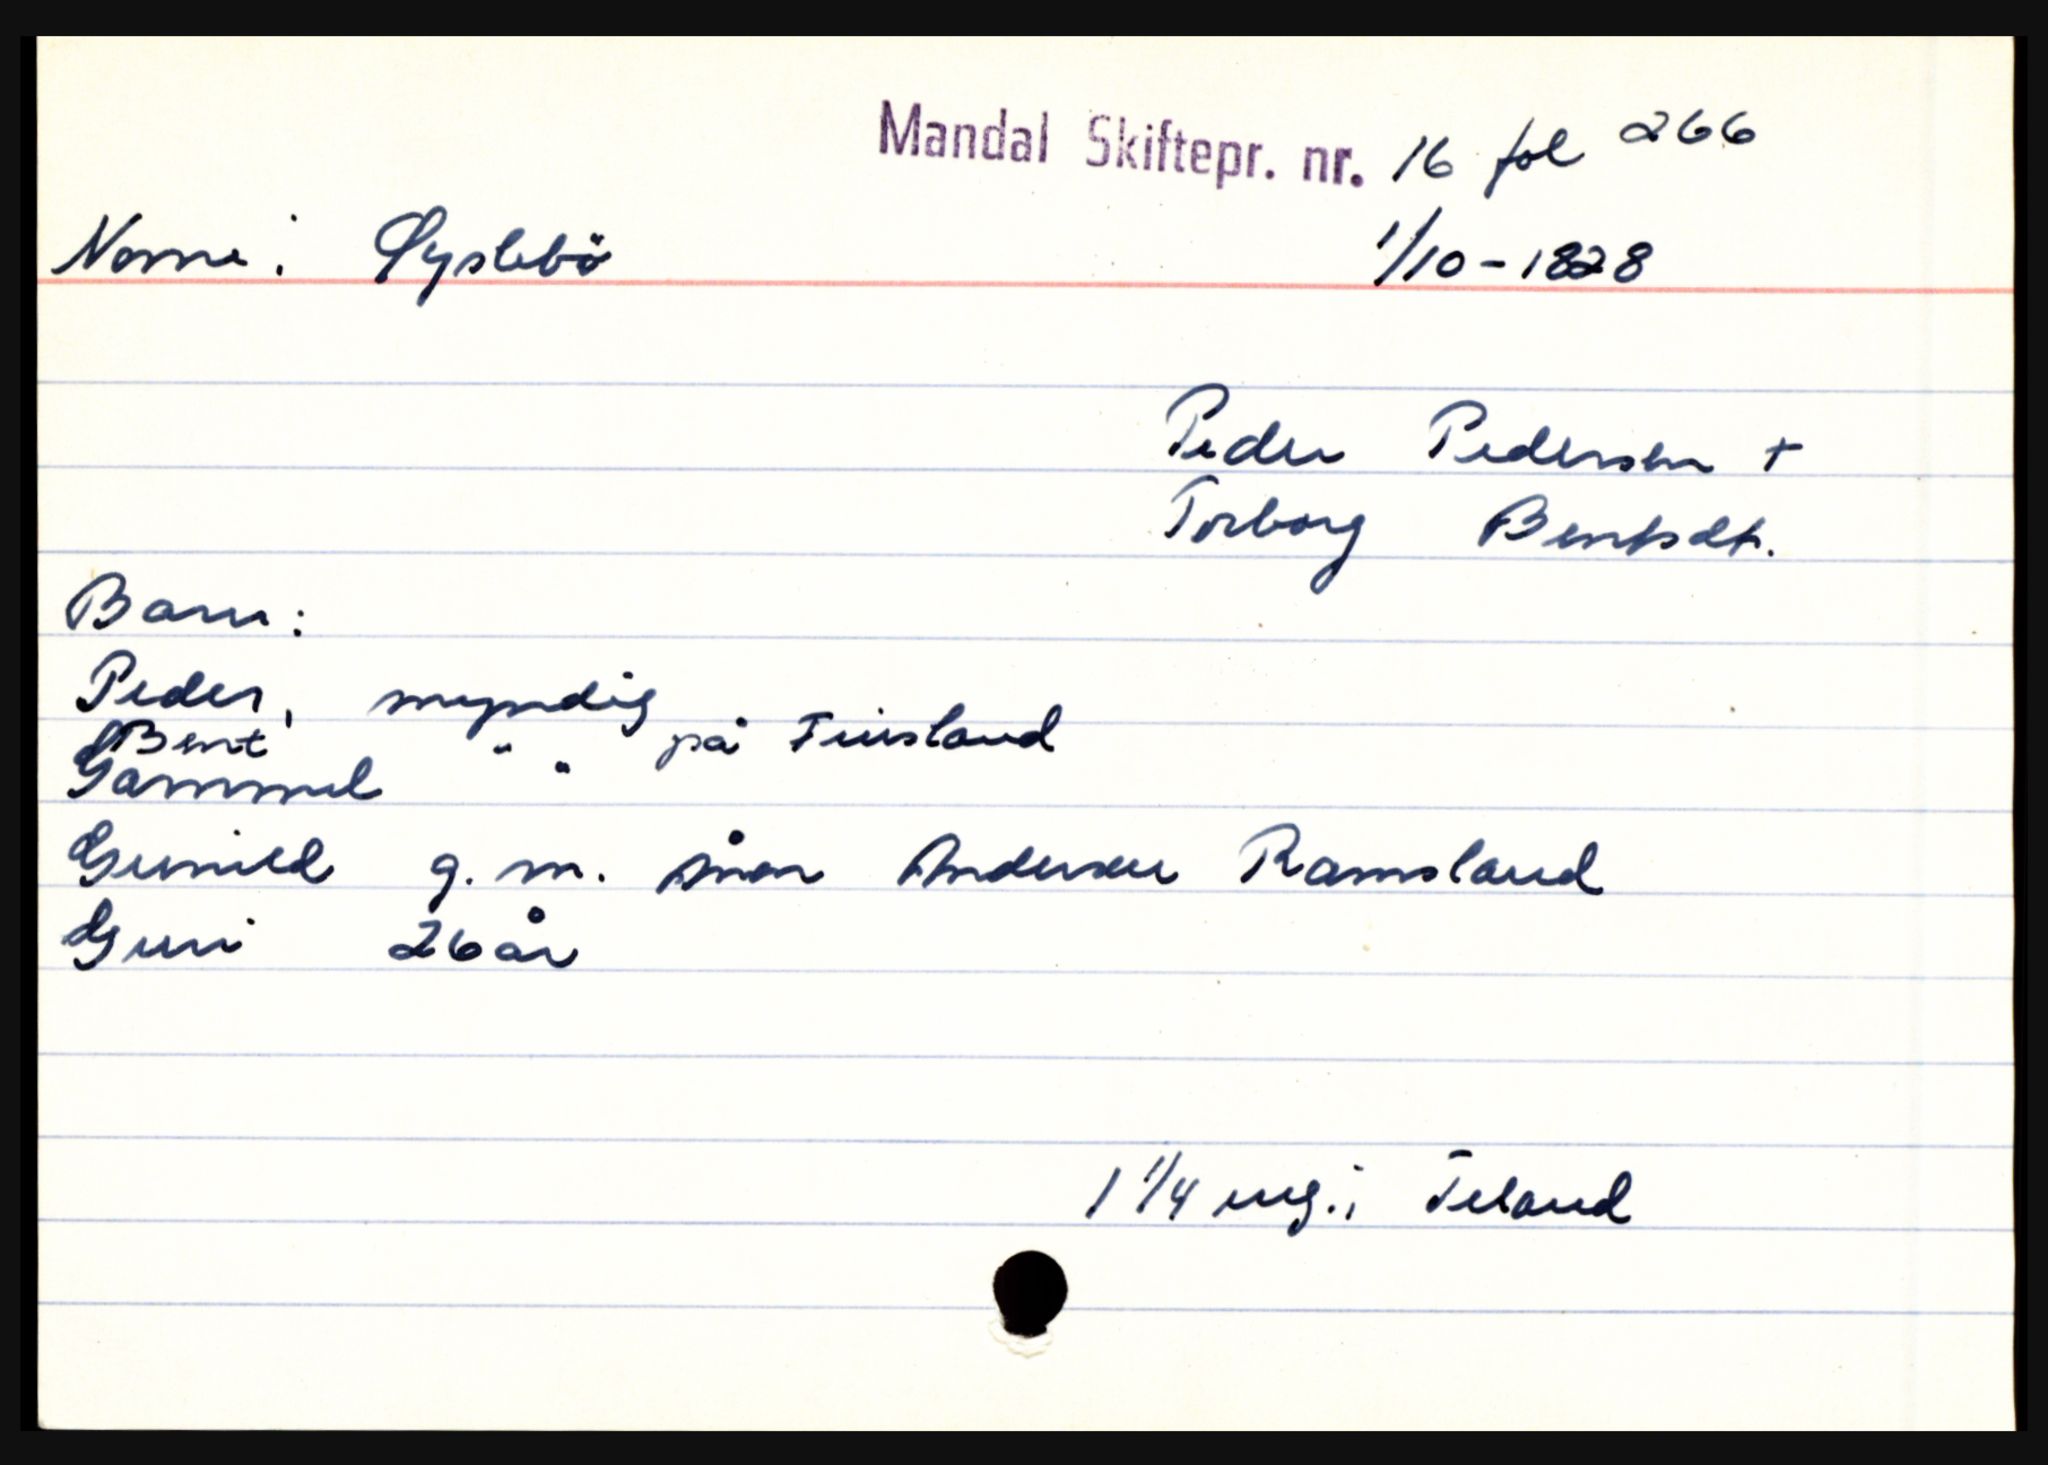 Mandal Skiftepr. nr. 16 fol 266
Nome i Øyslebö 1/10-1828
Peder Pedersen +
Torborg Bentsdt.
Barn:
Peder, myndig
Bent " på Finsland
Gammel "
Gunild g. m. Ånen Andersen Ramsland
Guri 26 år
1 1/4 eng. i Teland